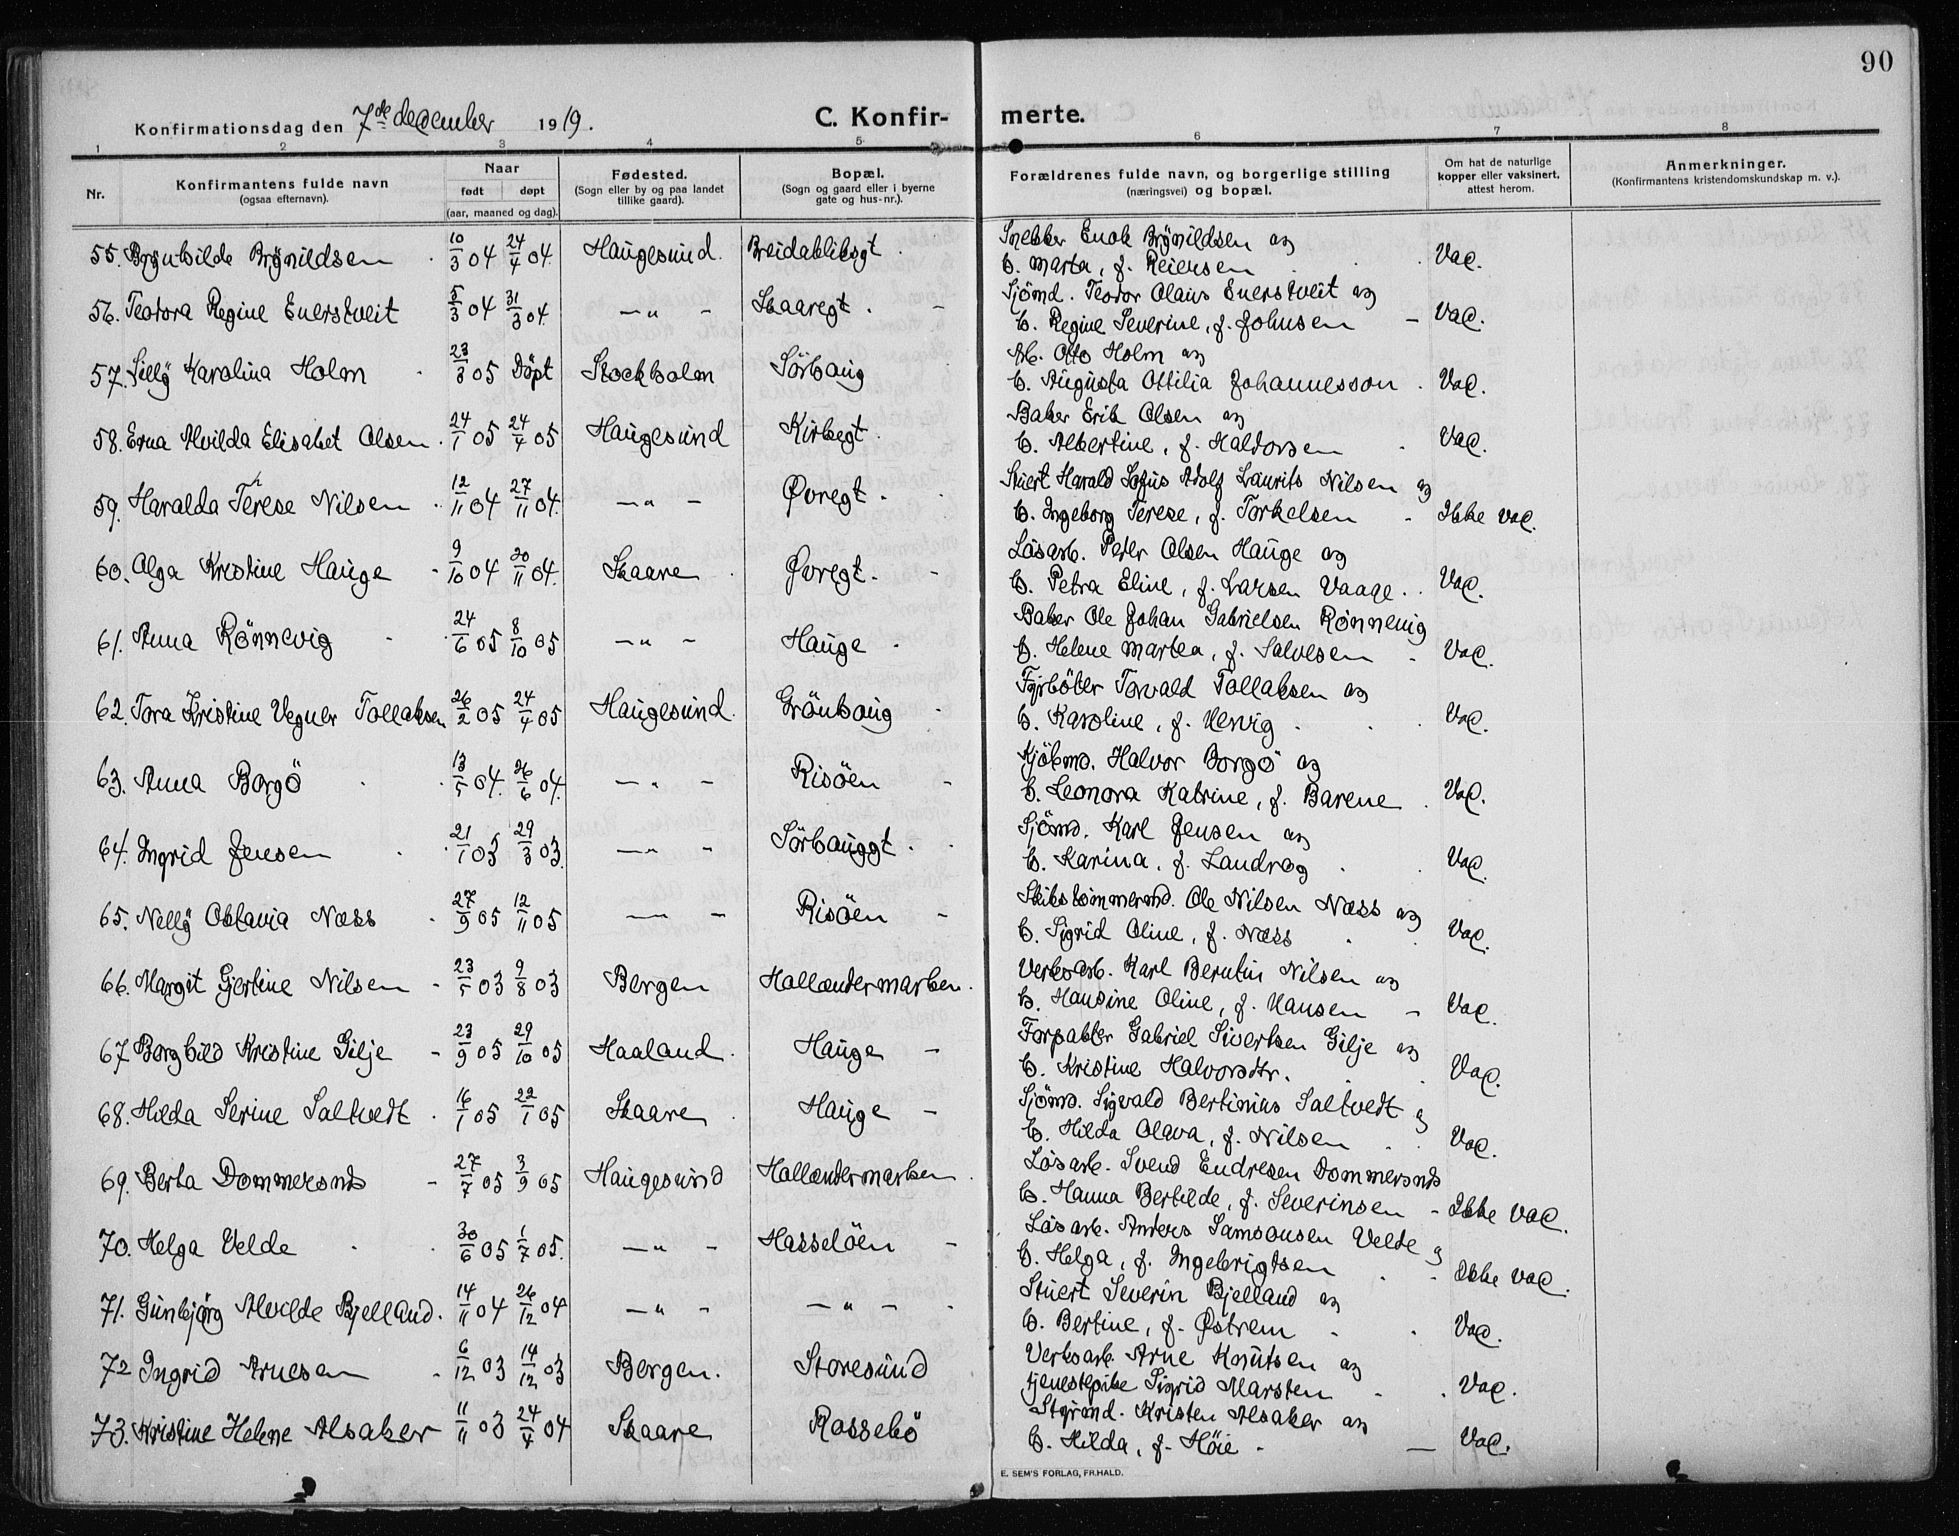 90
Konfirmationsdag den 7de december 1919.
C. Konfir- merte.
1 2 3 4 5 6 7 8
Nr.
Konfirmantens fulde navn
(ogsaa efternavn).
Naar
født døpt
(aar, maaned og dag).
Fødested.
(Sogn eller by og paa landet
tillike gaard).
Bopæl.
(Sogn og gaard eller i byerne
gate og hus-nr.).
Forældrenes fulde navn, og borgerlige stilling
(næringsvei) og bopæl.
Om hat de naturlige
kopper eller vaksinert,
attest herom.
Anmerkninger.
(Konfirmantens kristendomskundskap m. v.).
55. Brynhilde Brynildsen 10/3 04 24/4 04. Haugesund. Breidabliksgt. Snekker Enok Brynildsen og
h. Marta, f. Reiersen Vac.
56. Teodora Regine Enerstveit 5/3 04 31/3 04. —„— Skaaregt. Sjömd. Teodor Olaus Enerstveit og
h. Regine Severine, f. Johnsen — Vac.
57. Silly Karolina Holm 23/3 05 Döpt Stockholm Sörhaug Arb. Otto Holm og
h. Augusta Ottilia Johannesson. Vac.
58. Erna Alvilda Elisabet Olsen. 24/1 05 24/4 05 Haugesund Kirkegt. Baker Erik Olsen og
h. Albertine, f. Haldorsen Vac.
59. Haralda Therese Nilsen 12/11 04 27/11 04. —„— Øvregt. Stuert Harald Lofus Adolf Laurits Nilsen og
h. Ingeborg Terese, f. Torkelsen - Ikke vac.
60. Olga Kristine Hauge - 9/10 04 20/11 04. Skaare Øvregt. - Løsarb. Peter Olsen Hauge og
h. Petra Eline, f. Larsen Vaage. Vac.
61. Anna Rönnevig 24/6 05 8/10 05 —„— Hauge. Baker Ole Johan Gabrielsen Rönnevig
h. Helene Martea, f. Salvesen - Vac.
62. Tora Kristine Vegner Tollaksen 26/2 05 24/4 05 Haugesund. Grönhaug Fyrböter Torvald Tollaksen og
h. Karoline, f. Hervig. Vac.
63. Anna Borgö 13/5 04. 26/6 04. —„— Risöen - Kjöbmd. Halvor Borgö og
h. Leonora Katrine, f. Barene. Vac.
64. Ingrid Jensen 21/1 03 29/3 03. —„— Sörhauggt. Sjömd. Karl Jensen og
h. Karina, f. Landrog Vac.
65. Nelly Oktavia Næss 27/9 05 12/11 05 —„— Risöen - Skibstömmermd. Ole Nilsen Næss og
h. Sigrid Oline, f. Næss Vac.
66. Margit Gjertine Nilsen - 23/5 03 9/8 03 Bergen Hallændermarken. Verksarb. Karl Berntin Nilsen og
h. Hansine Oline, f. Hansen - Vac.
67 Borghild Kristine Gilje - 23/9 05 29/10 05 Haaland. Hauge - Forpakter Gabriel Sivertsen Gilje og
h. Kristine Halvorsdtr. Vac.
68. Hilda Serine Saltvedt. 16/1 05 22/1 05 Skaare Hauge - Sjömd. Sigvald Bertinius Saltvedt og
h. Hilda Olava, f. Nilsen Vac.
69. Berta Dommersnes - 27/7 05 3/9 05 Haugesund Hallændermarken. Løsarb. Svend Endresen Dommersnes
h. Hanna Bertilde, f. Severinsen - Ikke vac.
70. Helga Velde 30/6 05 1/7 05. —„— Hasselöen - Løsarb. Anders Samsonsen Velde og
h. Helga, f. Ingebrigtsen Ikke vac.
71. Gunbjørg Alvilde Bjelland. 14/11 04 26/12 04 —„— —„— Stuert Severin Bjelland og
h. Bertine, f. Østrem Vac.
72 Ingrid Arnesen - 6/12 03 14/12 03 Bergen. Storesund Verksarb. Arne Knutsen og
tjenestepike Sigrid Marsten Vac.
73. Kristine Helene Alsaker 11/11 03 24/4 04 Skaare Rossebö Styrmd. Kristen Alsaker og
h. Hilda, f. Höie - Vac.
E. SEM'S FORLAG, FR.HALD.